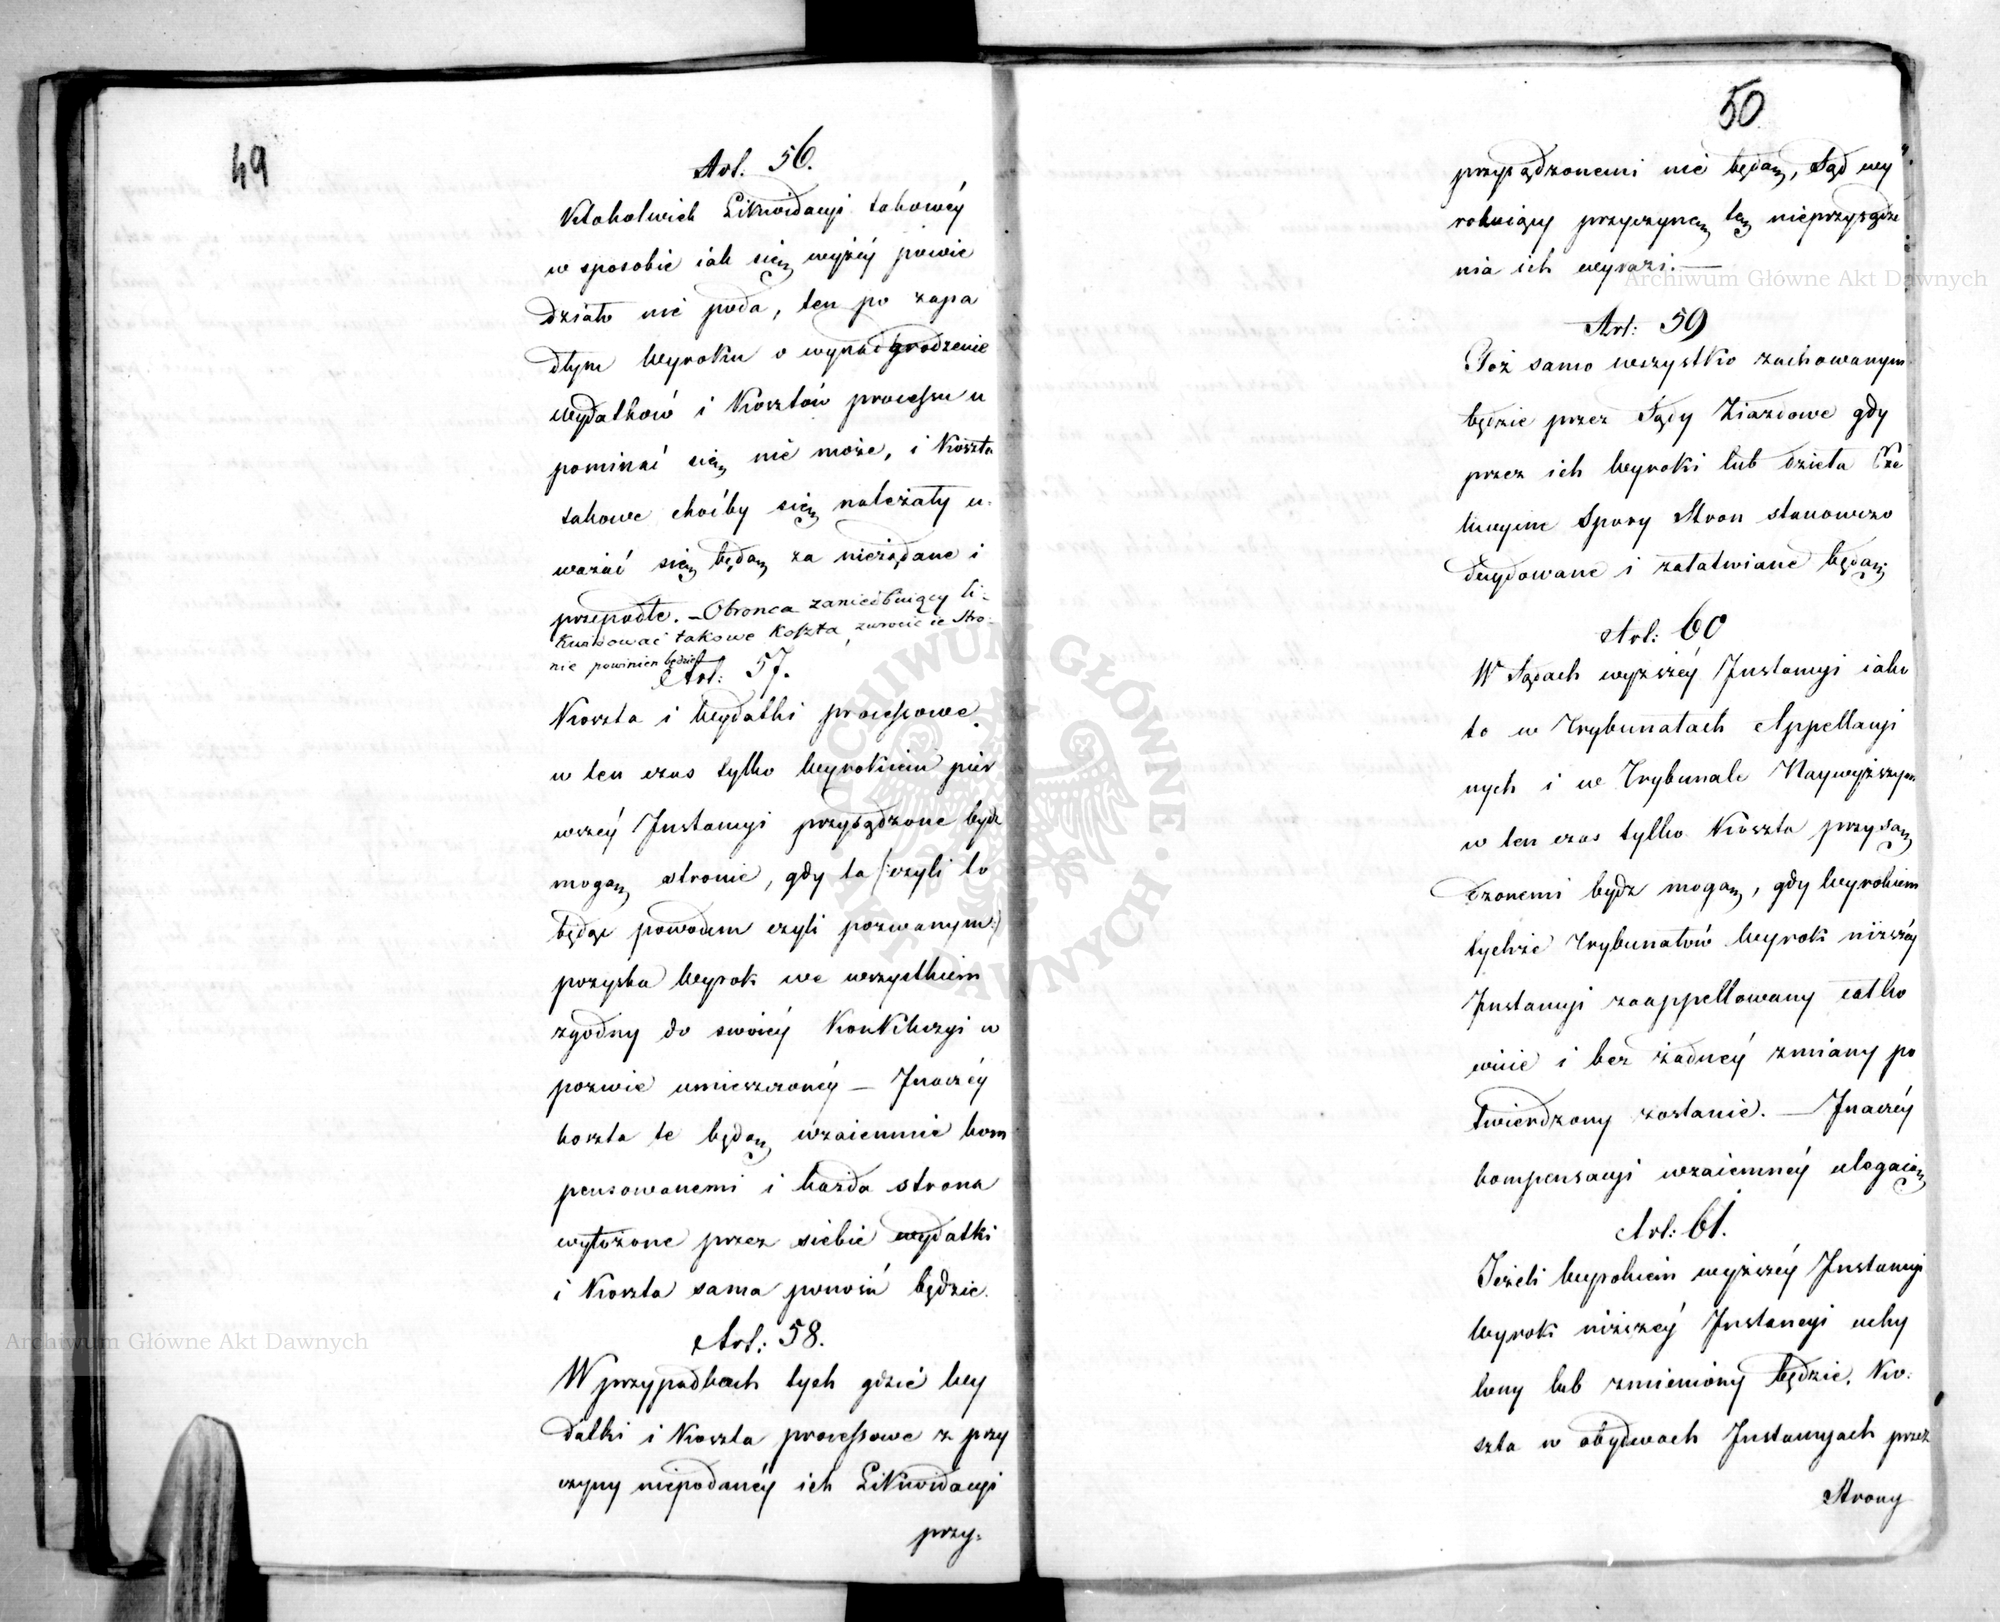 49
Art. 56.
Ktokolwiek Likwidacyi takowéy
w sposobie iak się wyżéy powie
działo nie poda, ten po zapa
dłym Wyroku o wynadgrodzenie
Wydatków i Kosztów processu u
pominać się nie może, i Koszta
takowe choćby się należały u-
ważać się będą za nieżądane i
przepadłe. – Obronca zaniedbuiący li-
kwidować takowe koszta, zwrócić ie stro-
nie powinien będzie
Art: 57.
Koszta i Wydatki processowe
w ten czas tylko Wyrokiem pier
wszéy Instancyi przysądzone bydź
mogą stronie, gdy ta (:czyli to
będąc powodem czyli pozwanym:)
pozyska Wyrok we wszystkiem
zgodny do swoiéy Konkluzyi w
pozwie umieszczonéy — Inaczéy
koszta te będą wzaiemnie kom
pensowanemi i każda strona
wyłożone przez siebie wydatki
i Koszta sama ponosić będzie.
Art: 58.
W przypadkach tych gdzie Wy
datki i Koszta processowe z przy
czyny niepodanéy ich Likwidacyi
przy-
50
przysądzonemi nie będą, Sąd wy
rokuiący przyczynę tę nieprzysądze
nia ich wyrazi. —
Art: 59
Toż samo wszystko zachowanym
będzie przez Sądy Ziazdowe gdy
przez ich Wyroki lub dzieła Cze
Spory Stron stanowczo
decydowane i załatwiane będą
Art: 60
W Sądach wyższéy Instancyi iako
to w Trybunałach Appellacyi
nych i w Trybunale Naywyższym
w ten czas tylko Koszta przysą
dzonemi bydź mogą, gdy Wyrokiem
tychże Trybunałów Wyrok niższéy
Instancyi zaappellowany całko
wicie i bez żadnéy zmiany po
twierdzony zostanie. — Inaczéy
kompensacyi wzaiemnéy ulegaią
Art: 61.
Jeżeli Wyrokiem wyższéy Instancyi
Wyrok niższéy Instancyi uchy
lony lub zmieniony będzie, Ko-
szta w obydwoch Instancyach przez
Strony
Archiwum Główne Akt Dawnych
Archiwum Główne Akt Dawnych
ARCHIWUM GŁÓWNE · AKT DAWNYCH ·